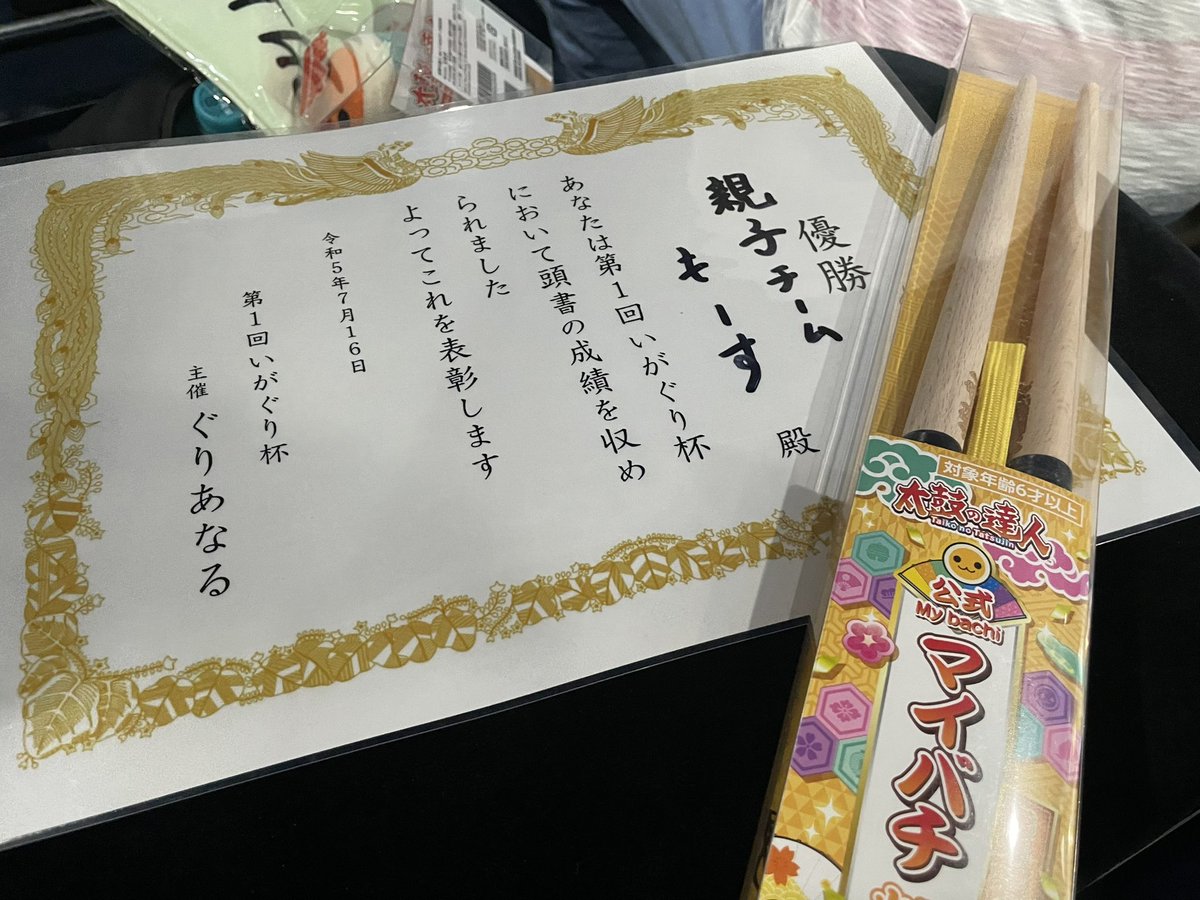 優勝
親子チーム
きーす
殿
あなたは第1回いがぐり杯
において頭書の成績を収め
られました
よってこれを表彰します
令和5年7月16日
第1回いがぐり杯
主催 ぐりあなる
対象年齢6才以上
太鼓の達人
Taiko no Tatsujin
公式
My bachi
マイバチ